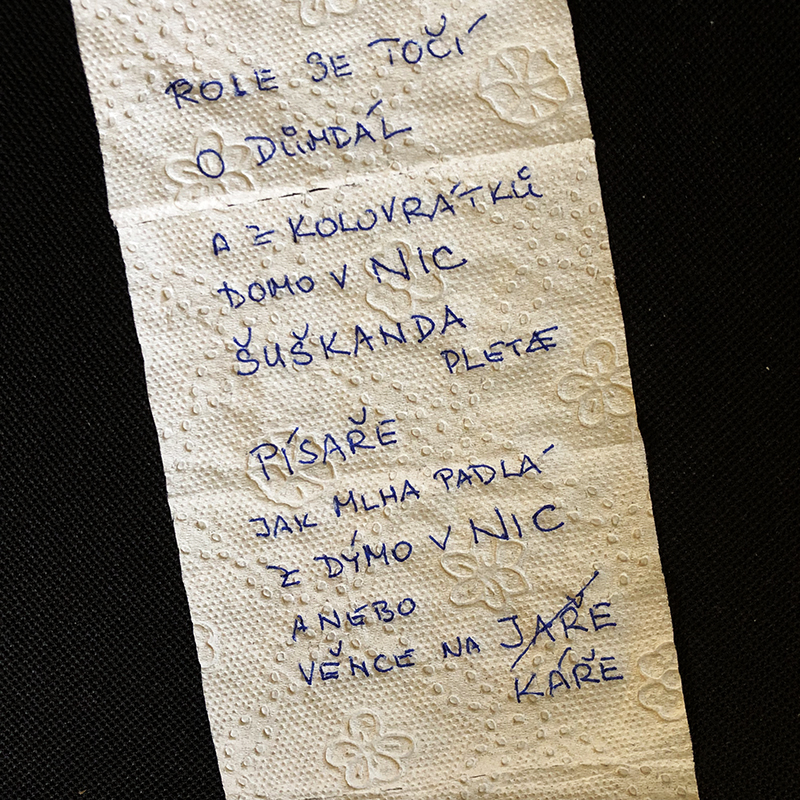 ROLE SE TOČÍ
O DŮMDÁL
A Z KOLOVRÁTKŮ
DOMO V NIC
ŠUŠKANDA
PLETAE
PÍSAŘE
JAK MLHA PADLÁ
Z DÝMO V NIC
ANEBO
VĚNCE NA JAŘE
KÁŘE